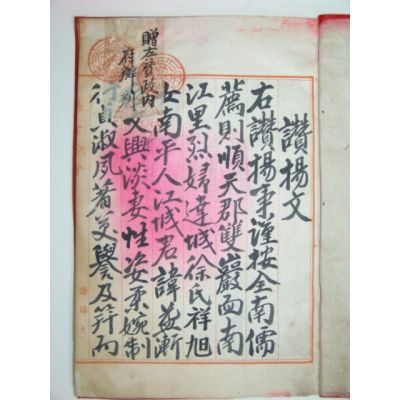 讚揚文
右讚揚事謹按全南儒
薦則順天郡雙巖面南
江里烈婦達城徐氏祥旭
女南平人江城君諱益漸
贈左贊政內
府辦判
文興淡妻性姿柔婉制
行貞淑夙著譽及笄而
讚揚文